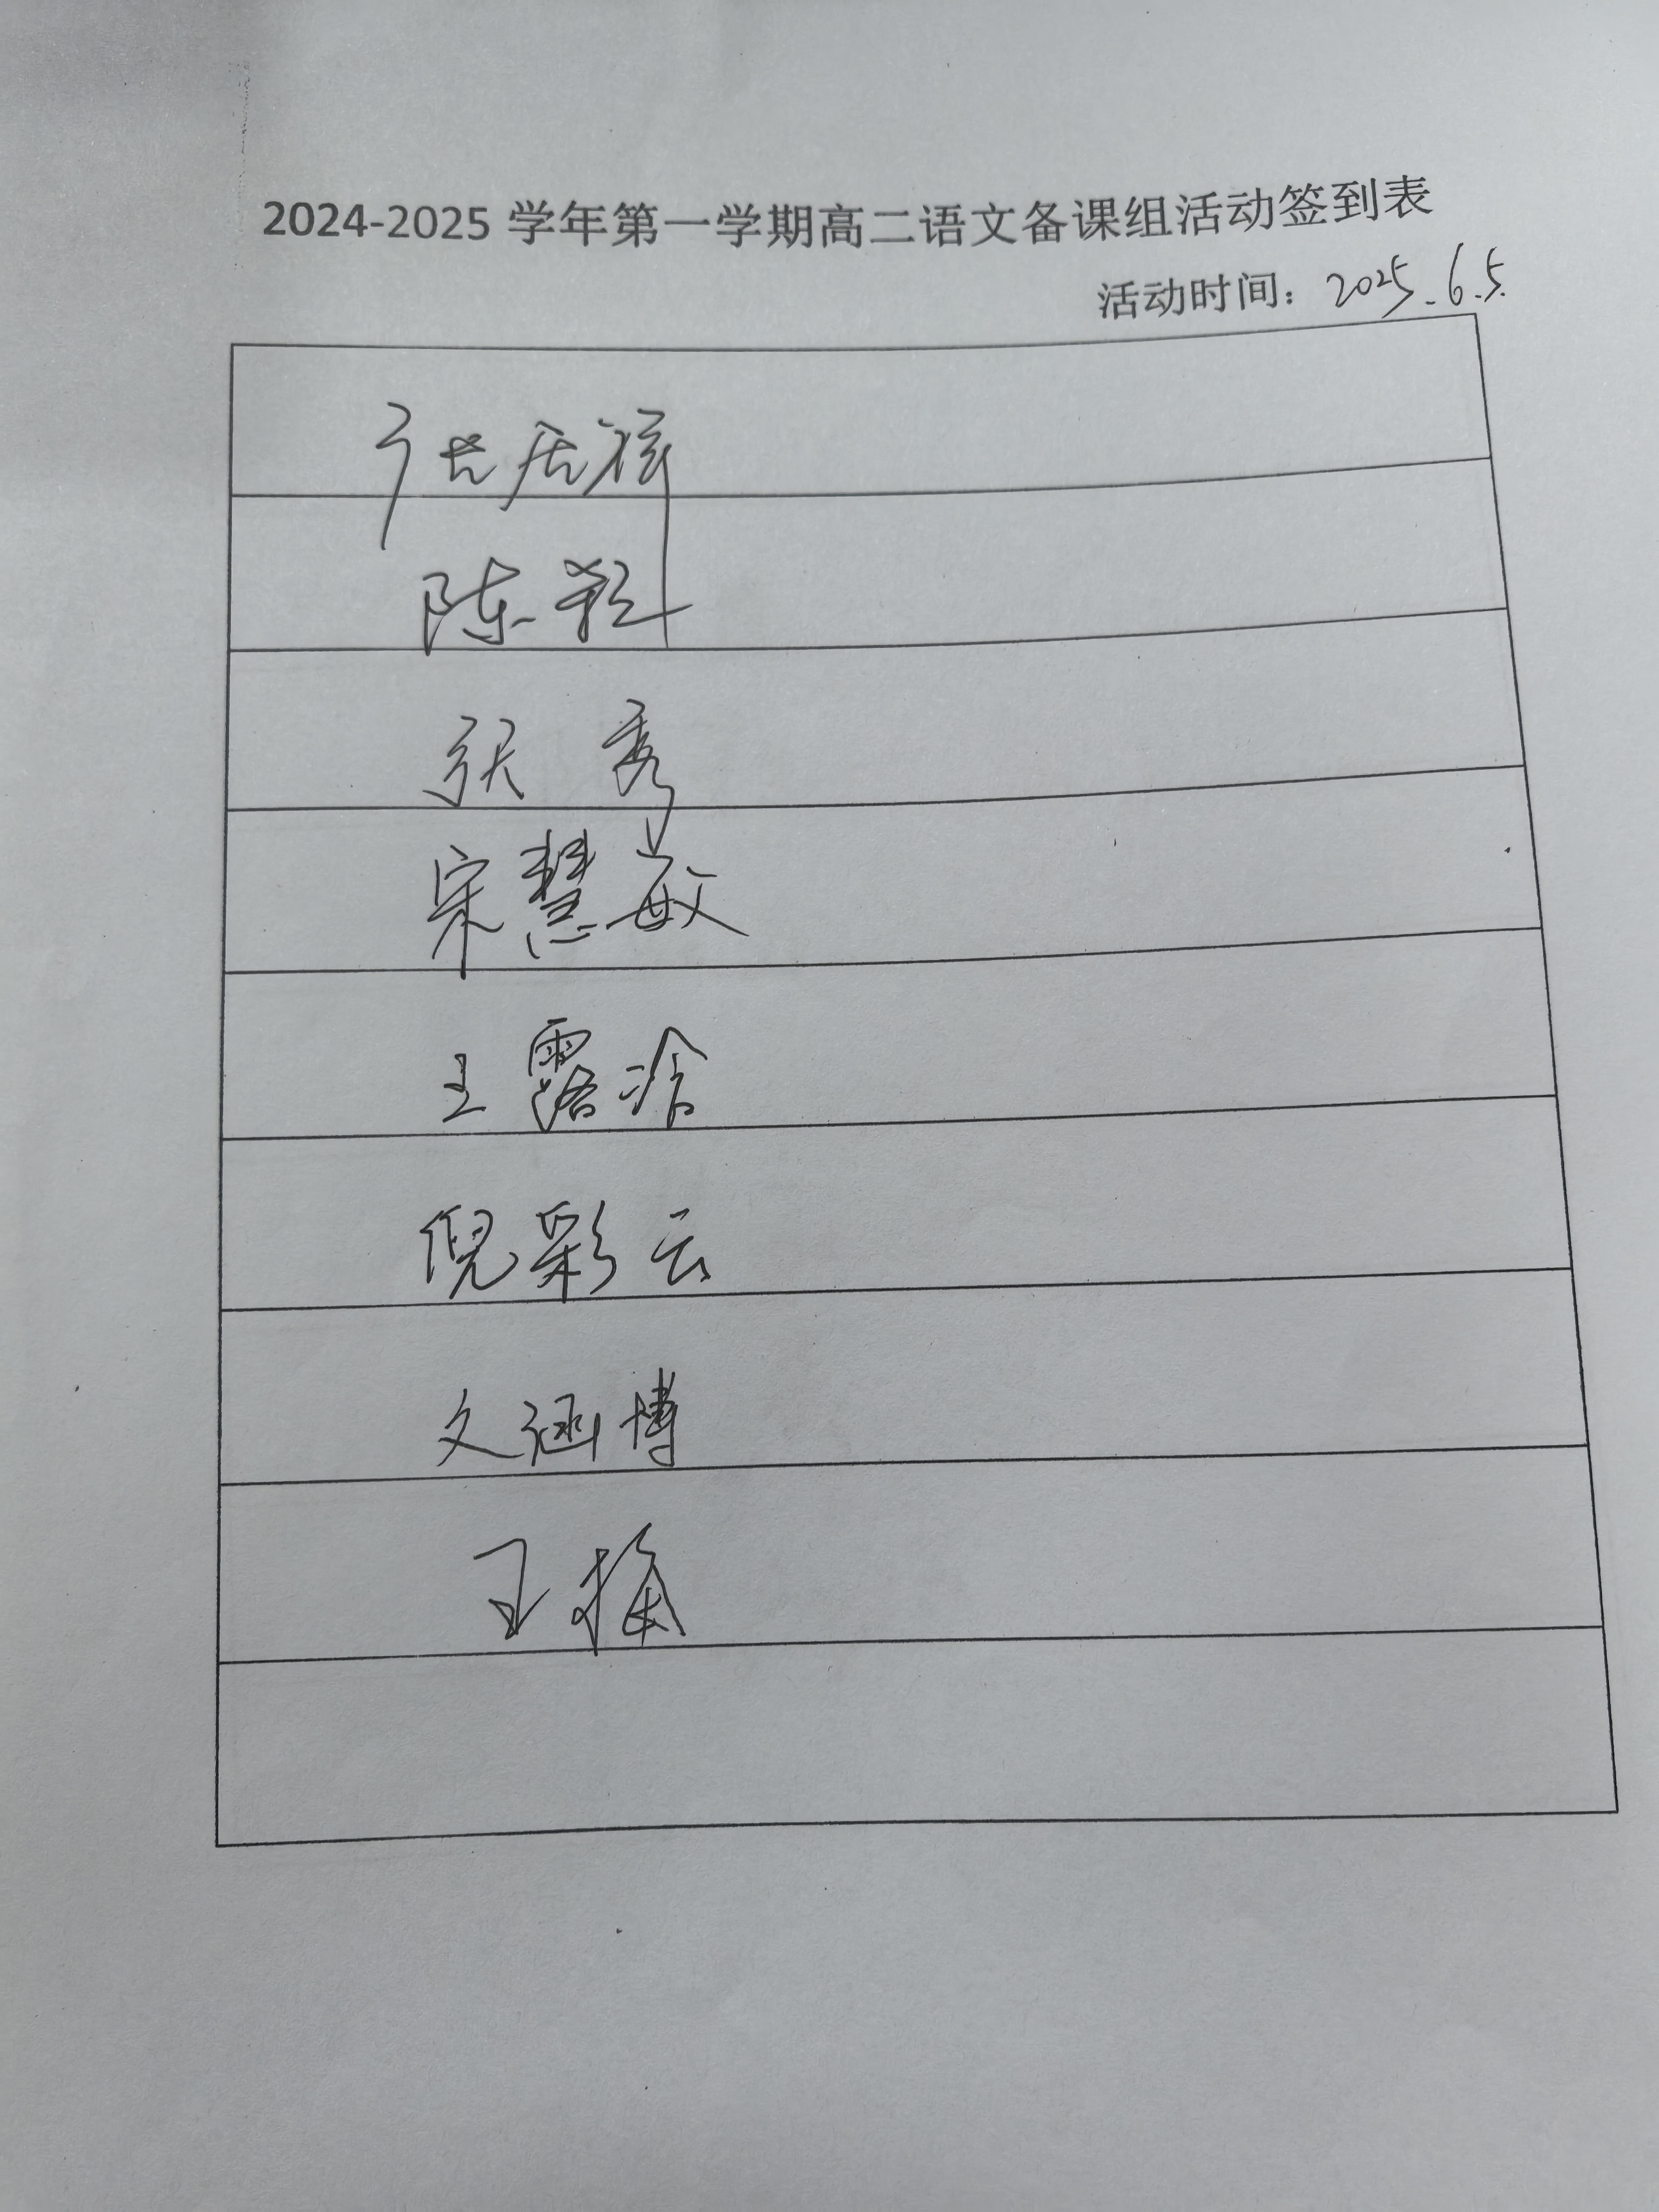 2024-2025 学年第一学期高二语文备课组活动签到表
活动时间：2025.6.5.
陈
张秀
宋慧敏
王露冾
倪彩云
文涵博
王梅